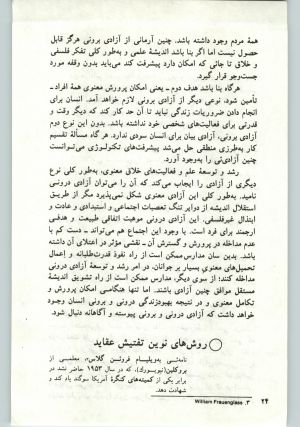 همهٔ مردم وجود داشته باشد. چنین آرمانی از آزادی برونی هرگز قابل
حصول نیست اما اگر بنا باشد اندیشهٔ علمی و به‌طور کلی تفکر فلسفی
و خلاق تا جائی که امکان دارد پیشرفت کند می‌باید بدون وقفه مورد
جست‌وجو قرار گیرد.
هرگاه بنا باشد هدف دوم ـ یعنی امکان پرورش معنوی همهٔ افراد ـ
تأمین شود، نوعی دیگر از آزادی برونی لازم خواهد آمد. انسان برای
انجام دادن ضروریات زندگی نباید تا آن حد کار کند که دیگر وقت و
قدرتی برای فعالیت‌های شخصی نداشته باشد. بدون این نوع دوم
آزادی برونی، آزادی بیان برای انسان سودی ندارد. هر گاه مسألهٔ تقسیم
کار به‌طرزی منطقی حل می‌شد پیشرفت‌های تکنولوژی می‌توانست
چنین آزادئی را به‌وجود آورد.
رشد و توسعهٔ علم و فعالیت‌های خلاق معنوی، به‌طور کلی نوع
دیگری از آزادی را ایجاب می‌کند که آن را می‌توان آزادی درونی
نامید. به‌طور کلی این آزادی معنوی شکل نمی‌پذیرد مگر از طریق
استقلال اندیشه از دوایر تنگ تعصبات اجتماعی و استبدادی و عادت و
ابتذال غیرفلسفی. این آزادی درونی موهبت اتفاقی طبیعت و هدفی
ارجمند برای فرد است. با وجود این اجتماع هم می‌تواند ـ دست کم با
عدم مداخله در پرورش و گسترش آن ـ نقشی مؤثر در اعتلای آن داشته
باشد. بدین سان مدارس ممکن است از راه نفوذ قدرت‌طلبانه و اعمال
تحمیل‌های معنوی بسیار بر جوانان، در امر رشد و توسعهٔ آزادی درونی
مداخله کنند؛ از سوی دیگر، مدارس ممکن است از راه تشویق اندیشهٔ
مستقل موافق چنین آزادی باشند. اما تنها هنگامی امکان پرورش و
تکامل معنوی و در نتیجه بهبود زندگی درونی و برونی انسان وجود
خواهد داشت که آزادی درونی و برونی پیوسته و آگاهانه دنبال شود.
روش‌های نوین تفتیش عقاید
نامه‌ئی به‌ویلیام فروئن گلاس۳، معلمی از
بروکلین (نیویورک)، که در سال ۱۹۵۳ حاضر نشد در
برابر یکی از کمیته‌های کنگرهٔ آمریکا سوگند یاد کند و
شهادت دهد.
۳. William Frauenglass
۲۴